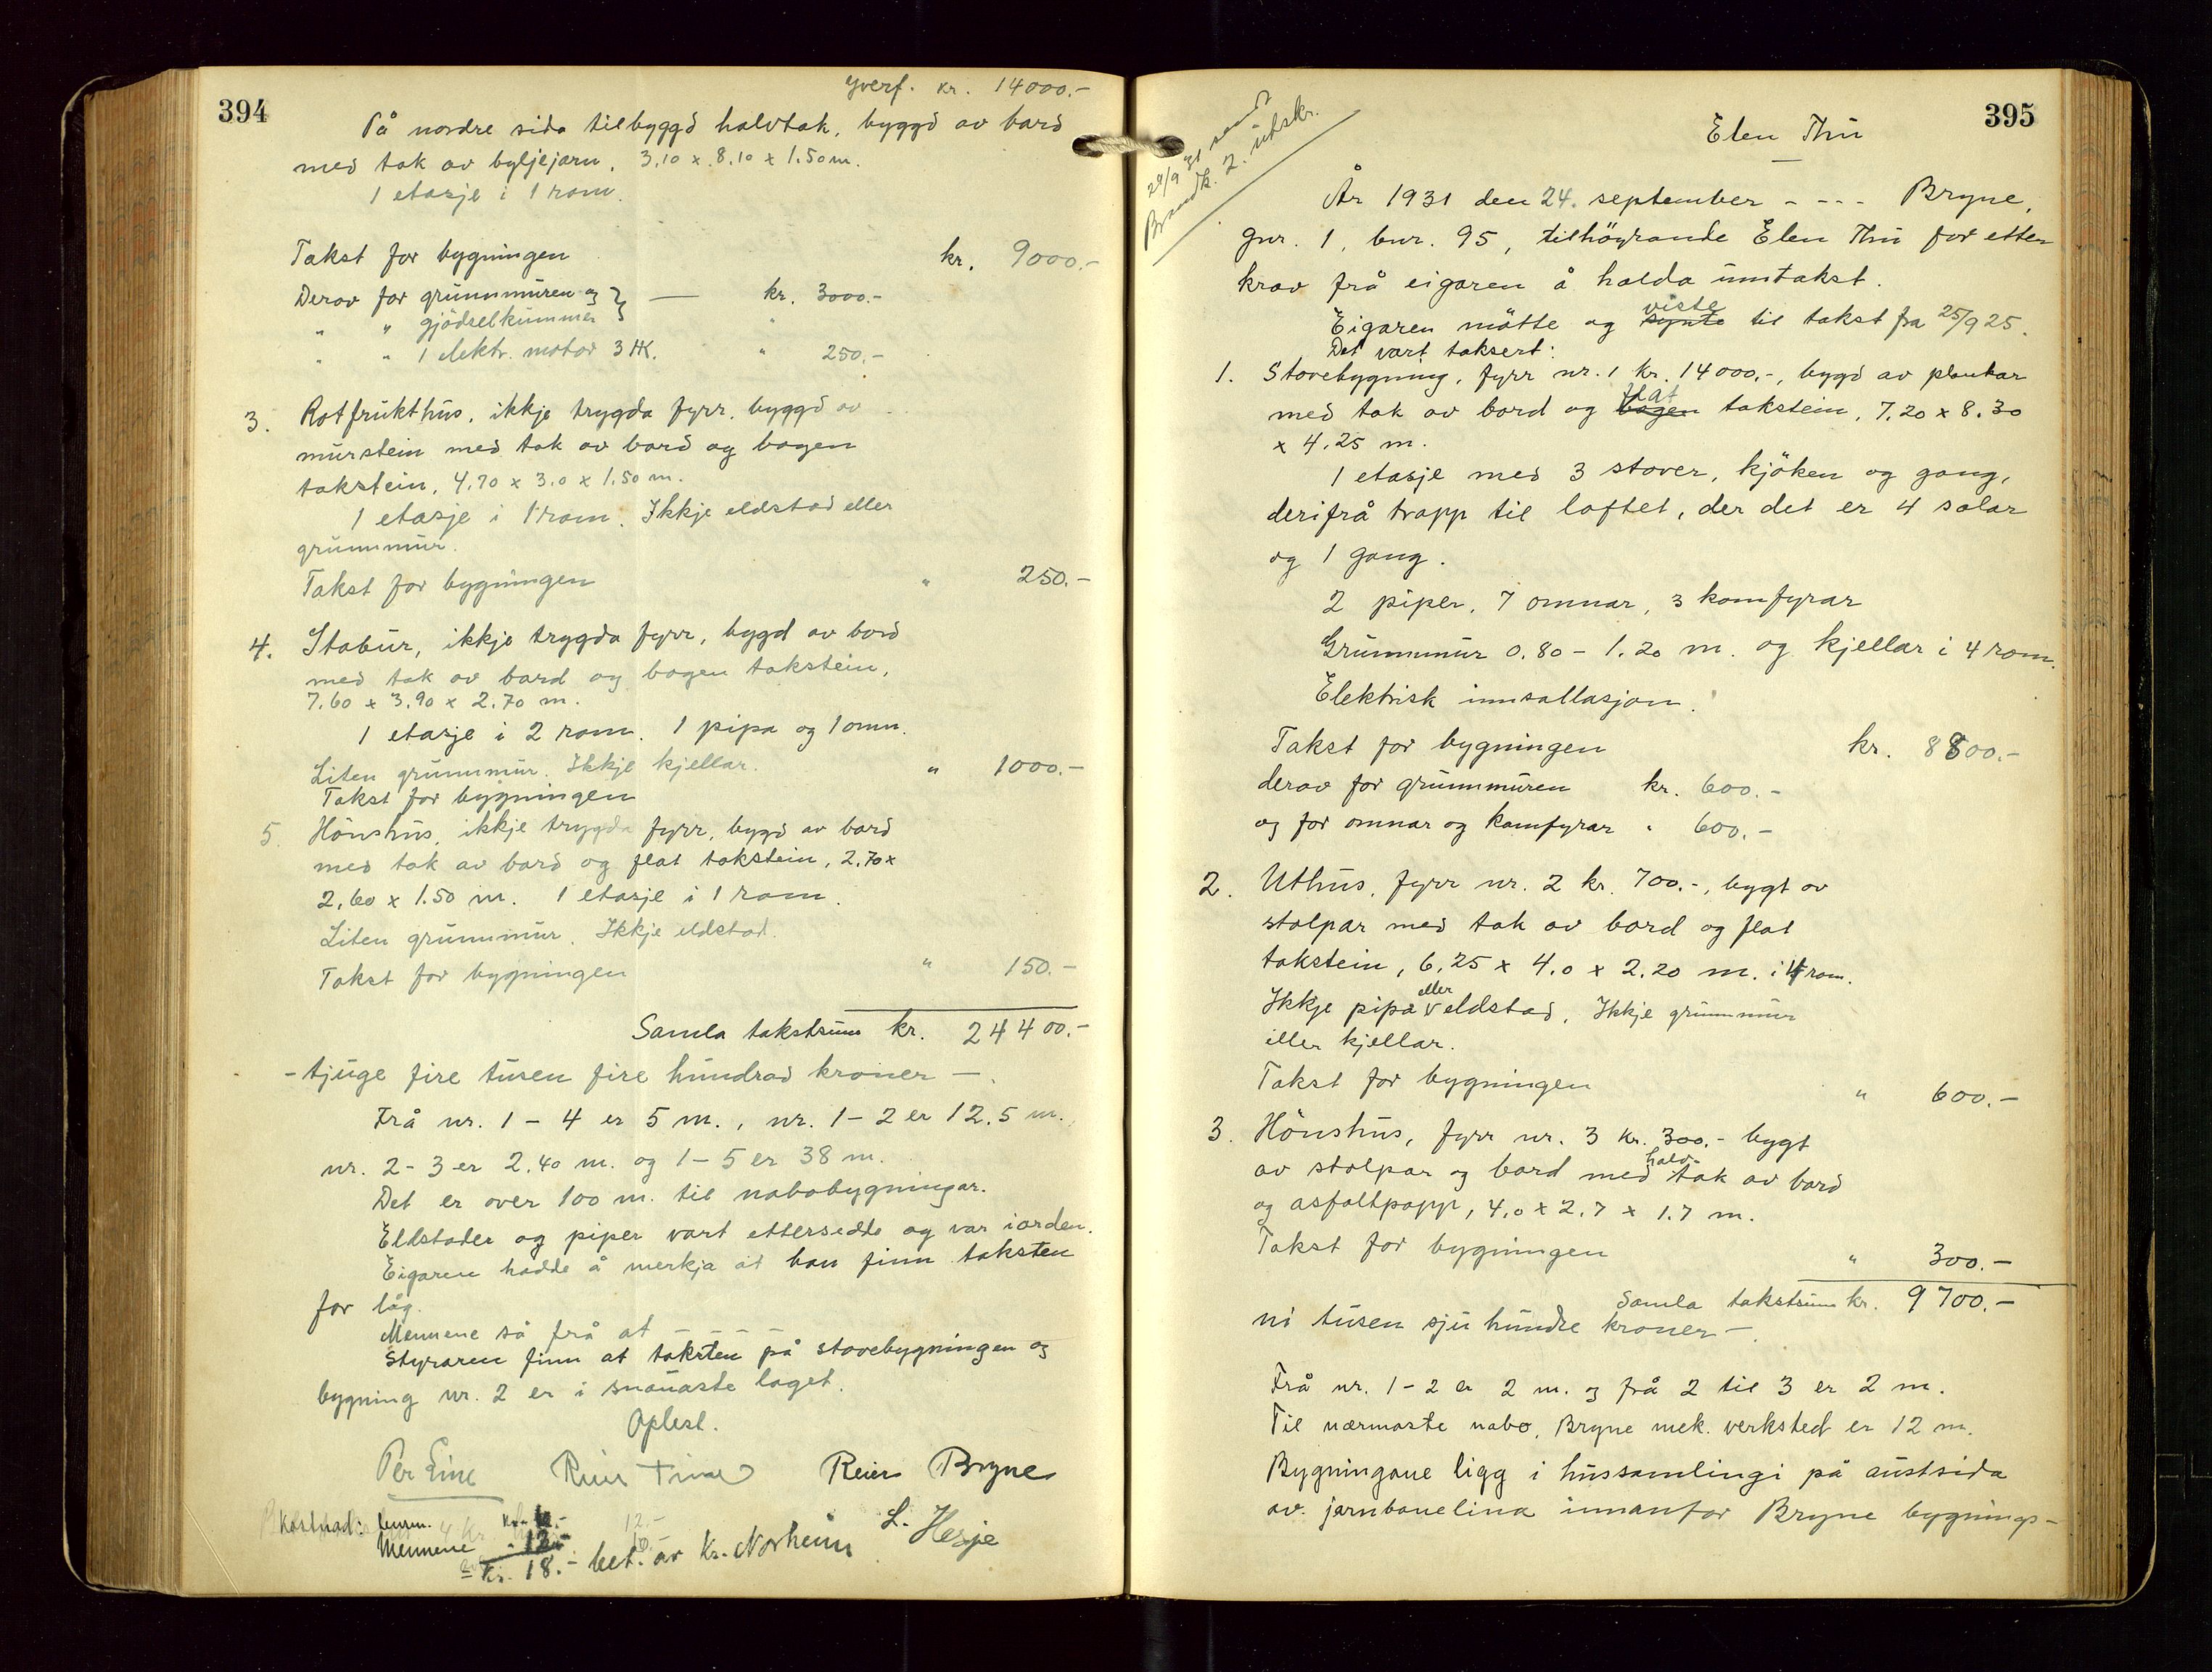 394
yverf. kr. 14000.-
På nordre sida tilbyggd halvtak, byggd av bord
med tak av bylgjejarn, 3.10 x 8.10 x 1.50 m.
1 etasje i 1 rom.
Takst for bygningen kr. 9000.-
Derav for grunnmuren og } — kr. 3000.-
" " gjødselkummer "
" " 1 elektr. motor 3 HK. " 250.-
3. Rotfrukthus, ikkje trygda fyrr, byggd av
murstein med tak av bord og bogen
takstein, 4.70 x 3.0 x 1.50 m.
1 etasje i 1 rom. Ikkje eldstad eller
grunnmur.
Takst for bygningen " 250.-
4. Stabur, ikkje trygda fyrr, bygd av bord
med tak av bord og bogen takstein,
7.60 x 3.90 x 2.70 m.
1 etasje i 2 rom. 1 pipa og 1 omn.
Liten grunnmur. Ikkje kjellar. " 1000.-
Takst for bygningen
5. Hönshus, ikkje trygda fyrr, bygd av bord
med tak av bord og flat takstein, 2.70 x
2.60 x 1.50 m. 1 etasje i 1 rom.
Liten grunnmur. Ikkje eldstad.
Takst for bygningen " 150.-
Samla takstsum kr. 24400.-
- tjuge fire tusen fire hundrad kroner —.
Frå nr. 1 - 4 er 5 m., nr. 1 - 2 er 12.5 m.,
nr. 2 - 3 er 2.40 m. og 1 - 5 er 38 m.
Det er over 100 m. til nabobygningar.
Eldstader og piper vart ettersedde og var i orden.
Eigaren hadde å merkja at han finn taksten
for låg.
Mennene så frå at - - - -
Styraren finn at taksten på stovebygningen og
bygning nr. 2 er i snauaste laget.
Oplest.
Per Line Reier Time Reier Bryne
L. Hesje
Kostnad: lensm. kr. 6.-
Mennene " 12.-
= kr. 18.- bet. av Kr. Norheim
395
24/9 31 sendt
Brandk. 2. utskr.
Elen Thu
År 1931 den 24. september - - - - Bryne,
gnr. 1, bnr. 95, tilhöyrande Elen Thu for etter
krav frå eigaren å halda umtakst.
viste
Eigaren mötte og synte til takst fra 25/9 25.
Det vart taksert:
1. Stovebygning, fyrr nr. 1 kr. 14000.-, bygd av plankar
flat
med tak av bord og bogen takstein, 7.20 x 8.30
x 4.25 m.
1 etasje med 3 stover, kjöken og gang,
derifrå trapp til loftet, der det er 4 salar
og 1 gang.
2 piper, 7 omnar, 3 komfyrar
Grunnmur 0.80 - 1.20 m. og kjellar i 4 rom.
Elektrisk innsallasjon.
Takst for bygningen kr. 8800.-
derav for grunnmuren kr. 600.-
og for omnar og komfyrar " 600.-
2. Uthus, fyrr nr. 2 kr. 700.-, bygt av
stolpar med tak av bord og flat
takstein, 6.25 x 4.0 x 2.20 m. i 4 rom.
eller
Ikkje pipa v eldstad. Ikkje grunnmur
eller kjellar.
Takst for bygningen " 600.-
3. Hönshus, fyrr nr. 3 kr. 300.- bygt
halv-
av stolpar og bord med tak av bord
og asfaltpapp, 4.0 x 2.7 x 1.7 m.
Takst for bygningen " 300.-
Samla takstsum kr. 9700.-
ni tusen sju hundre kroner —.
Frå nr. 1 - 2 er 2 m. og frå 2 til 3 er 2 m.
Til nærmaste nabo, Bryne mek. verksted er 12 m.
Bygningane ligg i hussamlingi på austsida
av jarnbanelina innanfor Bryne bygnings-